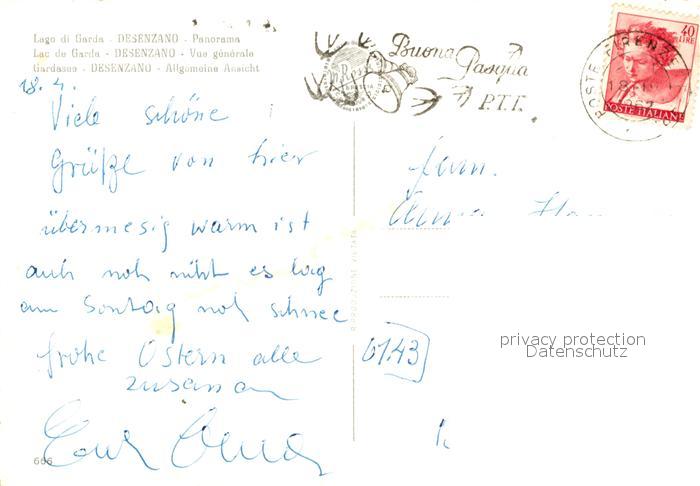 Lago di Garda - DESENZANO - Panorama
Lac de Garda - DESENZANO - Vue générale
Gardasee - DESENZANO - Allgemeine Ansicht
Buona Pasqua
P.T.T.
40
LIRE
POSTE ITALIANE
FIRENZE
18.4.
Viele schöne
Grüße von hier
übermesig warm ist
auh noh niht es lag
am Sontag noh schnee
frohe Ostern alle
zusaman
Fam.
RIPRODUZIONE VIETATA
0143
privacy protection
Datenschutz
666